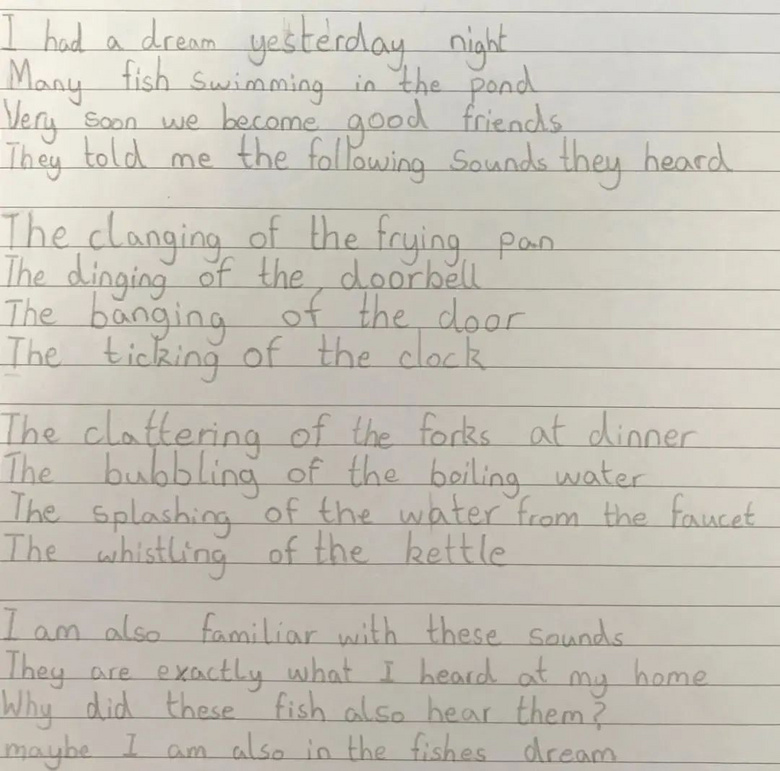 I had a dream yesterday night
Many fish swimming in the pond
Very soon we become good friends
They told me the following sounds they heard
The clanging of the frying pan
The dinging of the doorbell
The banging of the door
The ticking of the clock
The clattering of the forks at dinner
The bubbling of the boiling water
The splashing of the water from the faucet
The whistling of the kettle
I am also familiar with these sounds
They are exactly what I heard at my home
Why did these fish also hear them?
maybe I am also in the fishes dream